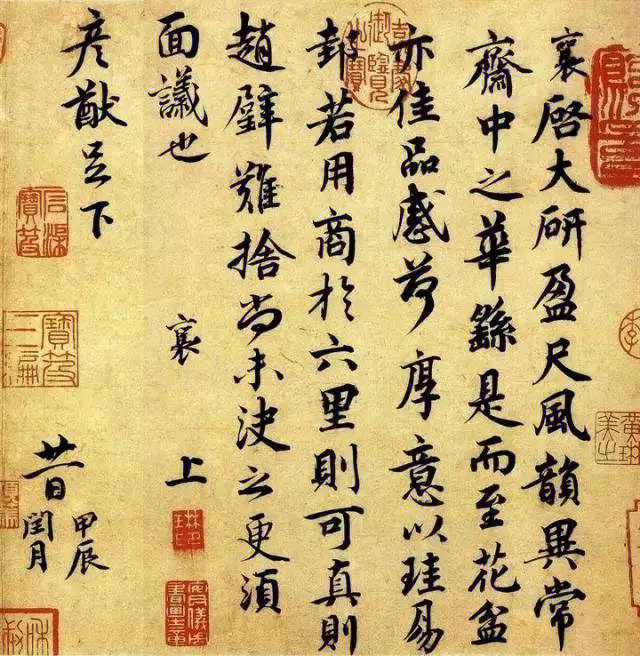 襄啓大研盈尺風韻異常
齋中之華繇是而至花盆
亦佳品感荷厚意以珪易
邽若用商於六里則可真則
趙璧難捨尚未決之更須
面議也
襄上
彦猷足下
廿一日
甲辰
閏月
黄琳美之
寶笈三編